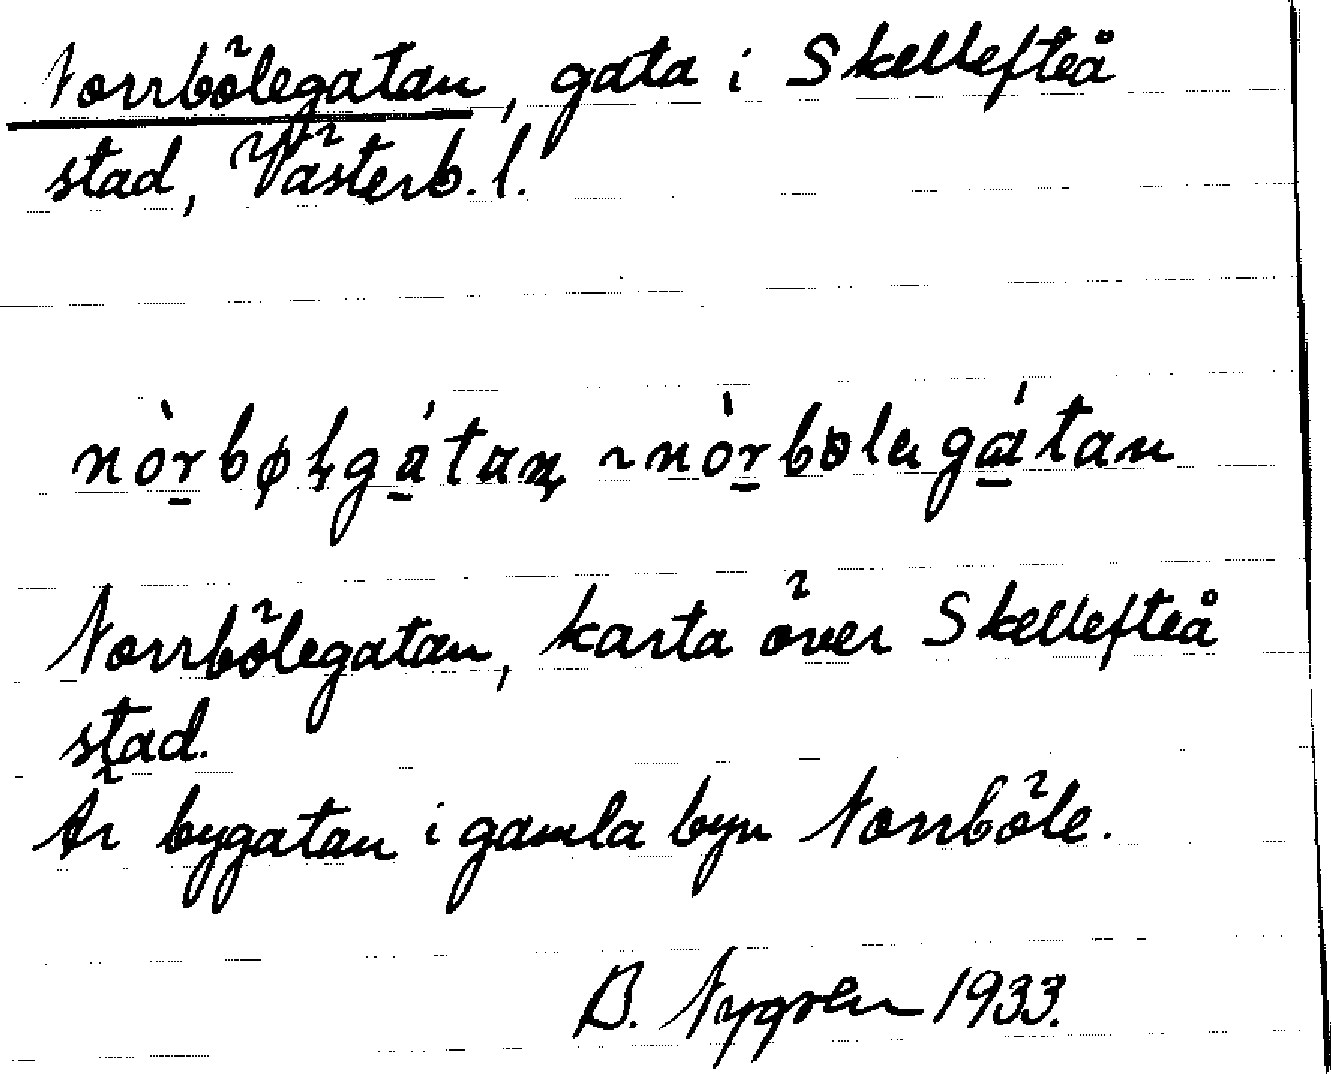 Norrbölegatan, gata i Skellefteå
stad, Västerb. l.
nòrbøɫgátan ~ nòrbølegátan
Norrbölegatan, karta över Skellefteå
stad.
Är bygatan i gamla byn Norrböle.
B. Nygren 1933.